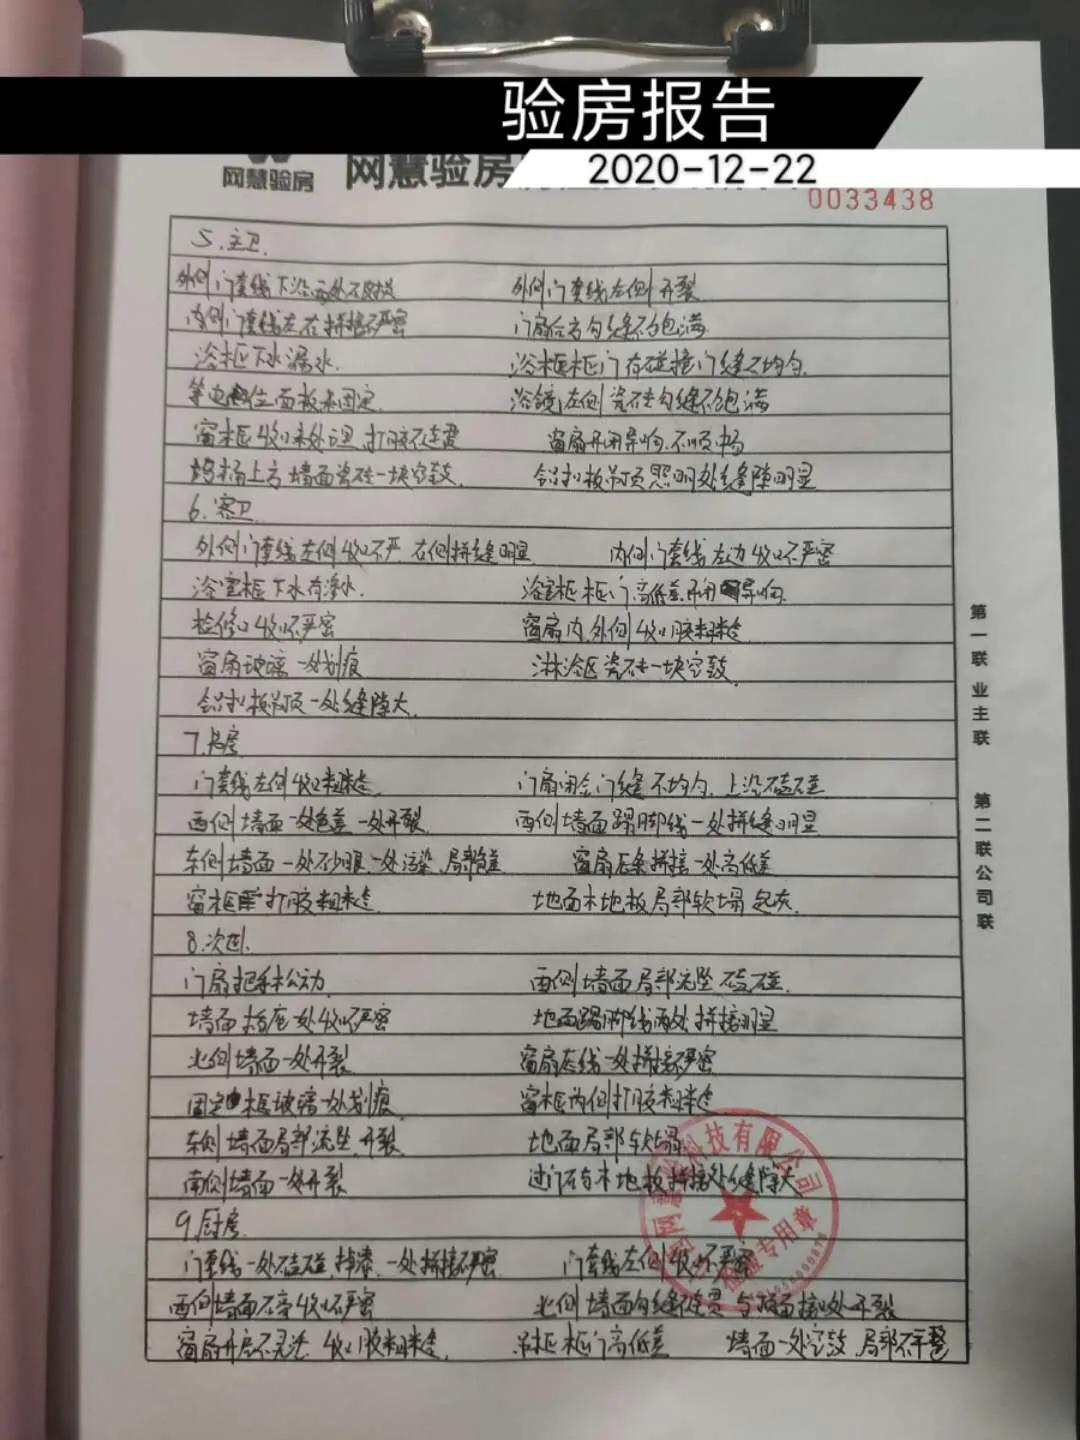 验房报告
2020-12-22
网慧验房 网慧验房
0033438
5.主卫.
外侧门套线下沿两处不 外侧门套线左侧开裂
内侧门套线左右拼接不严密 门扇后方勾缝不饱满
浴柜下水漏水. 浴柜柜门有碰撞门缝不均匀.
等电位面板未固定. 浴镜左侧瓷砖勾缝不饱满
窗框收口未处理,打胶不连贯 窗扇开闭异响.不顺畅
马桶上方墙面瓷砖一块空鼓. 铝扣板吊顶照明处缝隙明显
6.客卫
外侧门套线左侧收口不严.右侧拼缝明显 内侧门套线左右收口不严密
浴室柜下水有渗水. 浴室柜柜门高低差.开闭异响.
检修口收口不严密 窗扇内.外侧收口胶粗糙
窗扇玻璃一处划痕 淋浴区瓷砖一块空鼓.
铝扣板吊顶一处缝隙大.
7.书房
门套线左侧收口粗糙. 门扇闭合门缝不均匀.上沿磕碰
西侧墙面一处色差一处开裂. 西侧墙面踢脚线一处拼缝明显
东侧墙面一处砂眼.一处污染.局部色差 窗扇压条拼接一处高低差
窗框打胶粗糙. 地面木地板局部软塌起灰.
8.次卧.
门扇把手松动 西侧墙面局部流坠磕碰.
墙面插座一处收口不严密 地面踢脚线两处拼接明显
北侧墙面一处开裂 窗扇压线一处拼接不严密
固定框玻璃一处划痕 窗框内侧打胶粗糙
东侧墙面局部流坠.开裂 地面局部软塌
南侧墙面一处开裂 过门石与木地板拼接处缝隙大
9.厨房.
门套线一处磕碰.掉漆.一处拼接不严密 门套线左侧收口不严密
西侧墙面收口不严密 北侧墙面勾缝不连贯 与顶面接口处开裂
窗扇开启不灵活 收口胶粗糙. 吊柜柜门高低差 墙面一处空鼓.局部不平整
第一联 业主联
第二联 公司联
科技有限公司
检验专用章